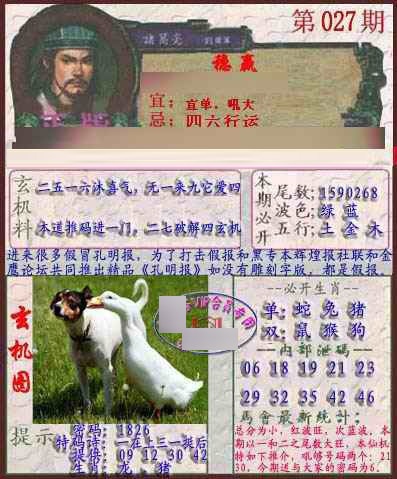 第027期
諸葛亮
稳赢
宜：宜单，吼大
忌：四六行运
玄机料
二五一六沐喜气，无一来九它爱四
本道推码进一门，二七破解四玄机
本期必开
尾数：1590268
波色：绿 蓝
五行：土 金 木
进来很多假冒孔明报，为了打击假报和黑专本辉煌报社联和金
鹰论坛共同推出精品《孔明报》如没有雕刻字版，都是假报。
玄机图
必开生肖
单：蛇 兔 猪
双：鼠 猴 狗
内部泄码
06 18 19 21 23
29 32 35 42 46
馬會最新統計：
总分为小，红波旺，次蓝波，本
期以一和二之尾数大旺，本仙机
特如下推介，吼够号码两个：21
30，今期送与大家的密码为6。
提示
密码：1826
特码诗：一在十三一挺后
提供：09 12 30 42
生肖：龙，猪